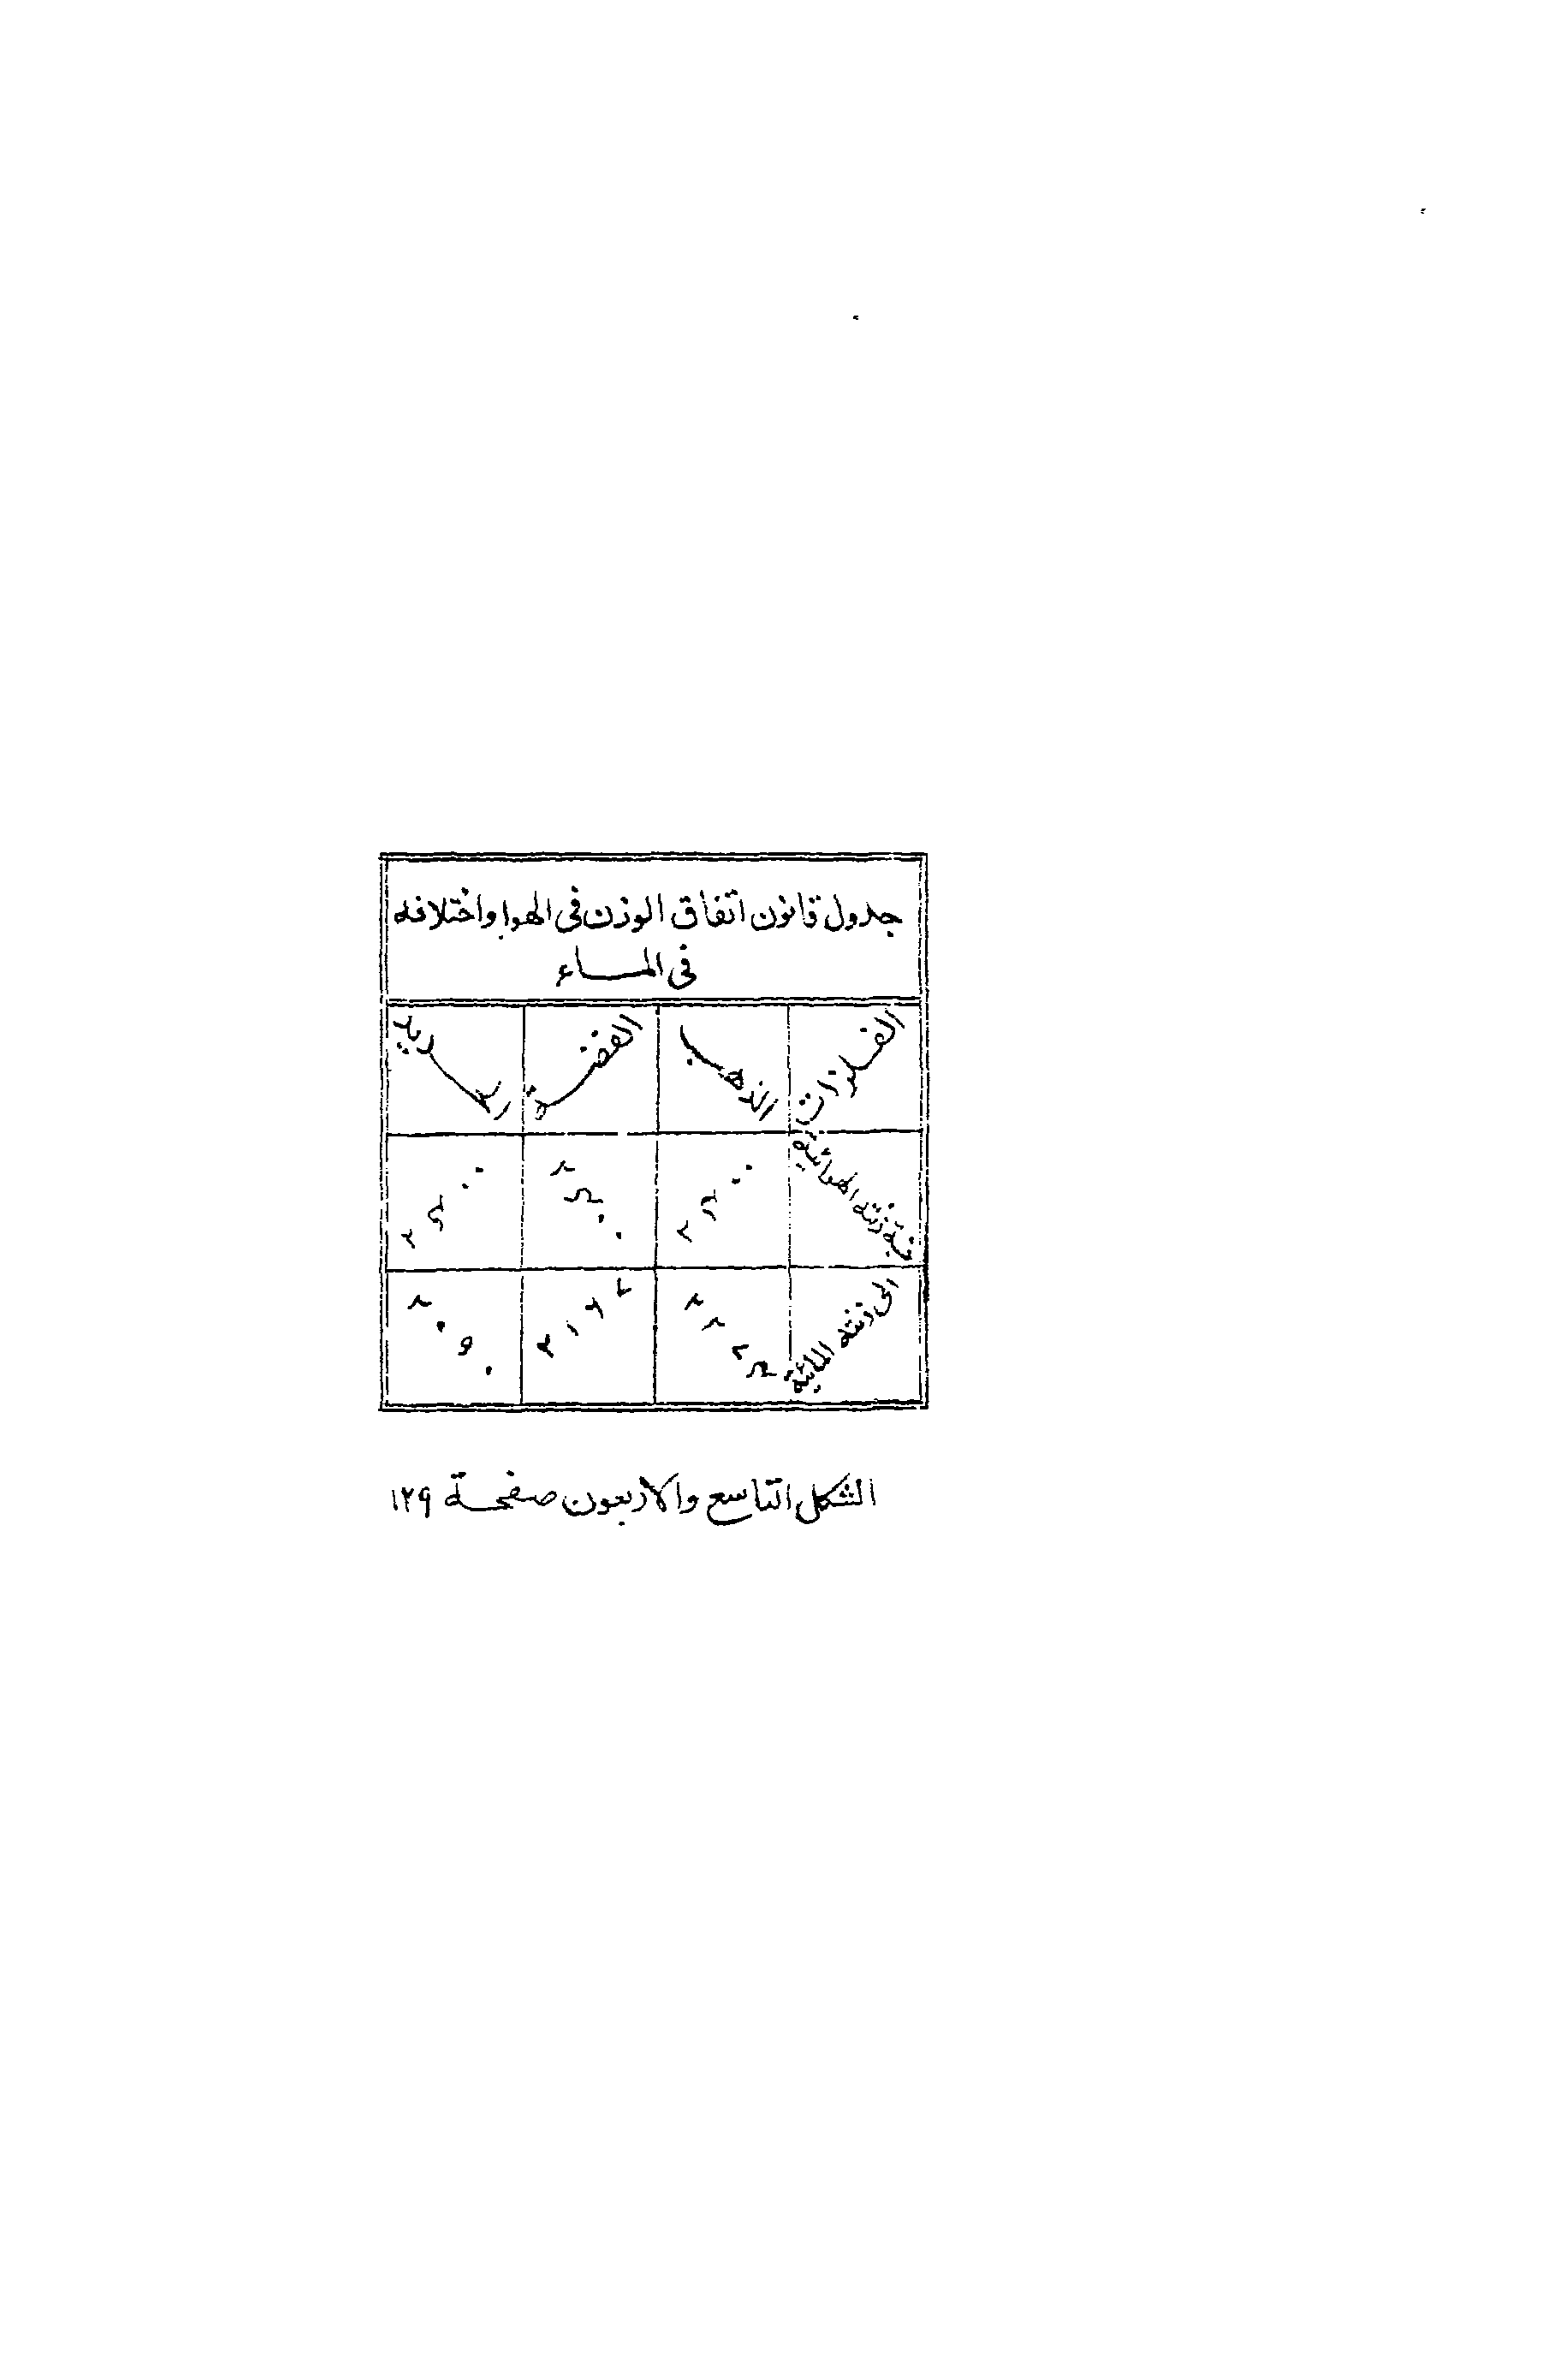 جدول قانون اتفاق الوزن فى الهوا واختلافه
فى المــاء
الفلزات الذهب الفضة الحديد
نسبة زنته الهوائية ٢٤٠٠ ٢٤٠٠ ٢٤٠٠
الى زنته المائية ٢٢٧٤ ٢١٦٧ ٢٠٩٠
الشكل التاسع والاربعون صفحة ١٢٩